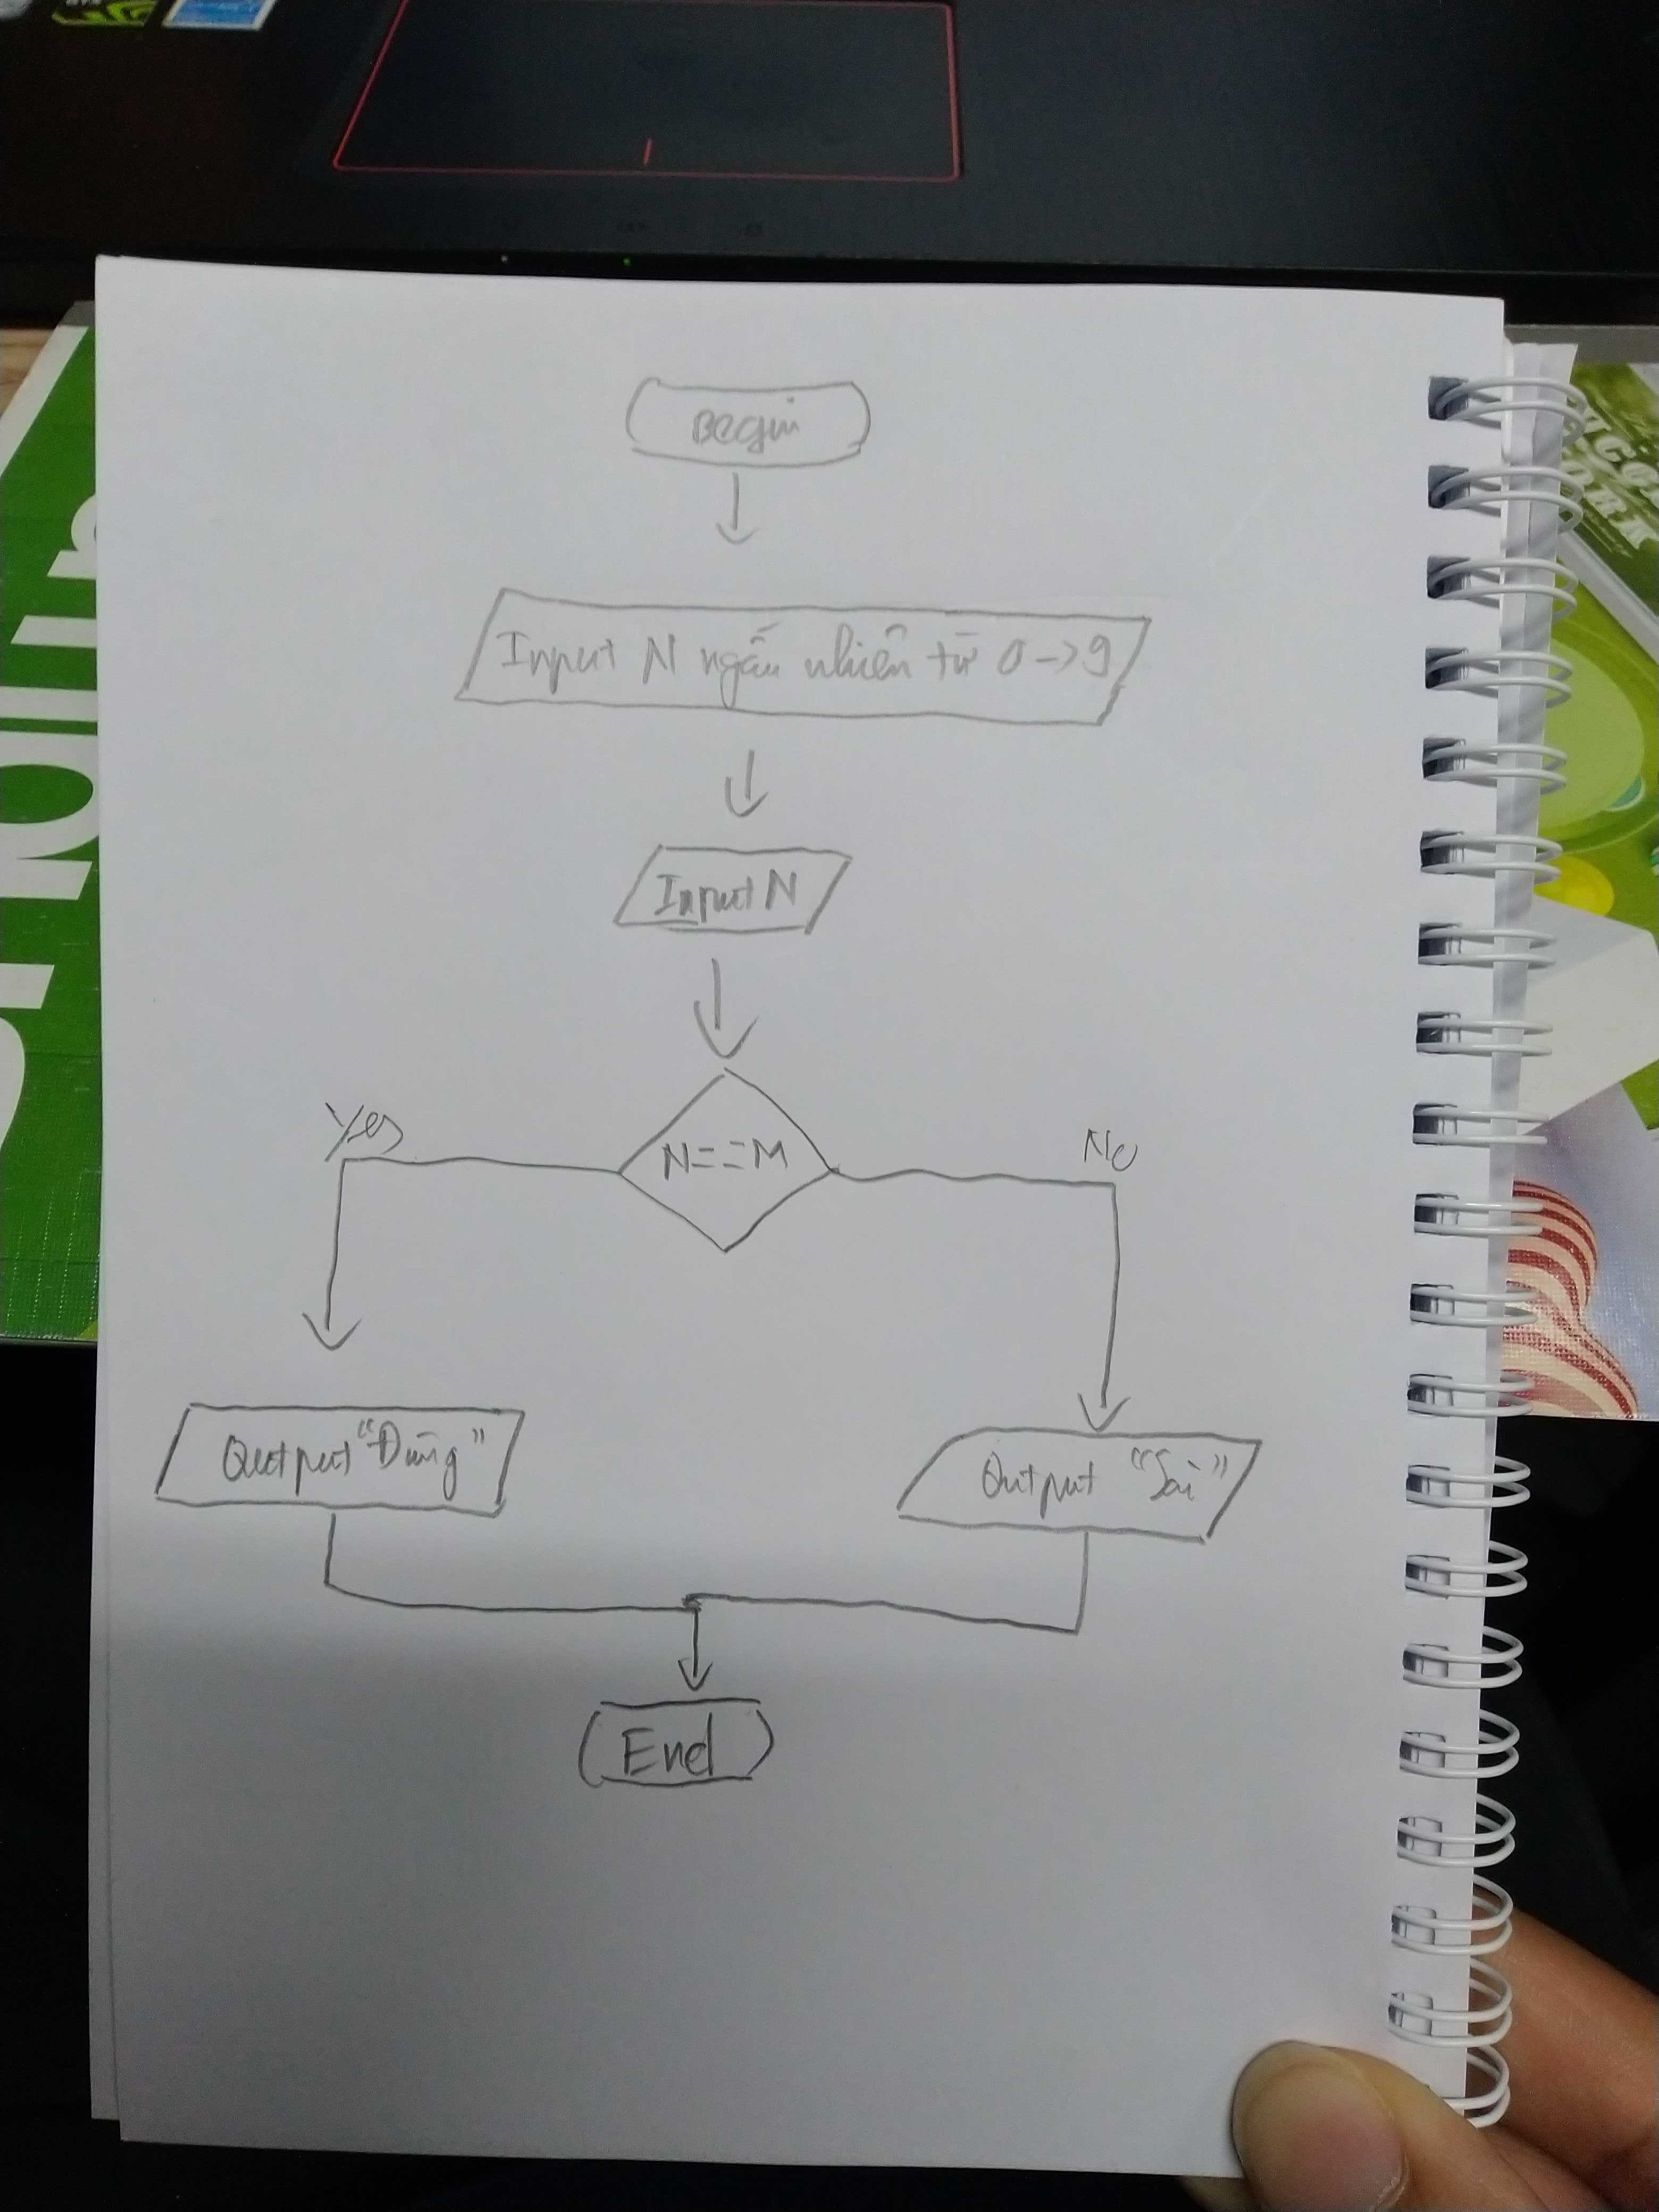 Begin
Input N ngẫu nhiên từ 0->9
Input N
N==M
Yes
No
Output "Đúng"
Output "Sai"
End